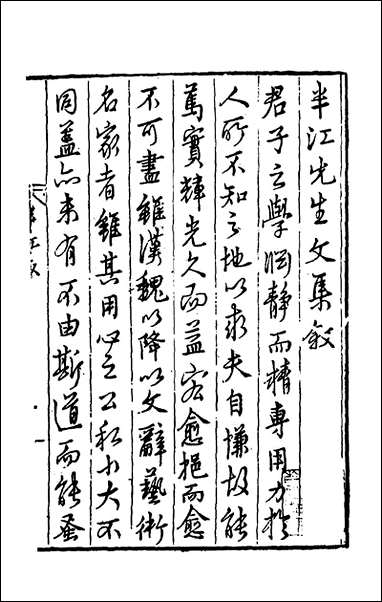 半江先生文集叙
君子之學淵静而精專用力於
人所不知之地以求夫自慊故能
篤實輝光久而益宏愈挹而愈
不可盡雖漢魏以降以文辭藝術
名家者雖其用心之公私小大不
同蓋亦未有不由斯道而能蚤
半江叙
一